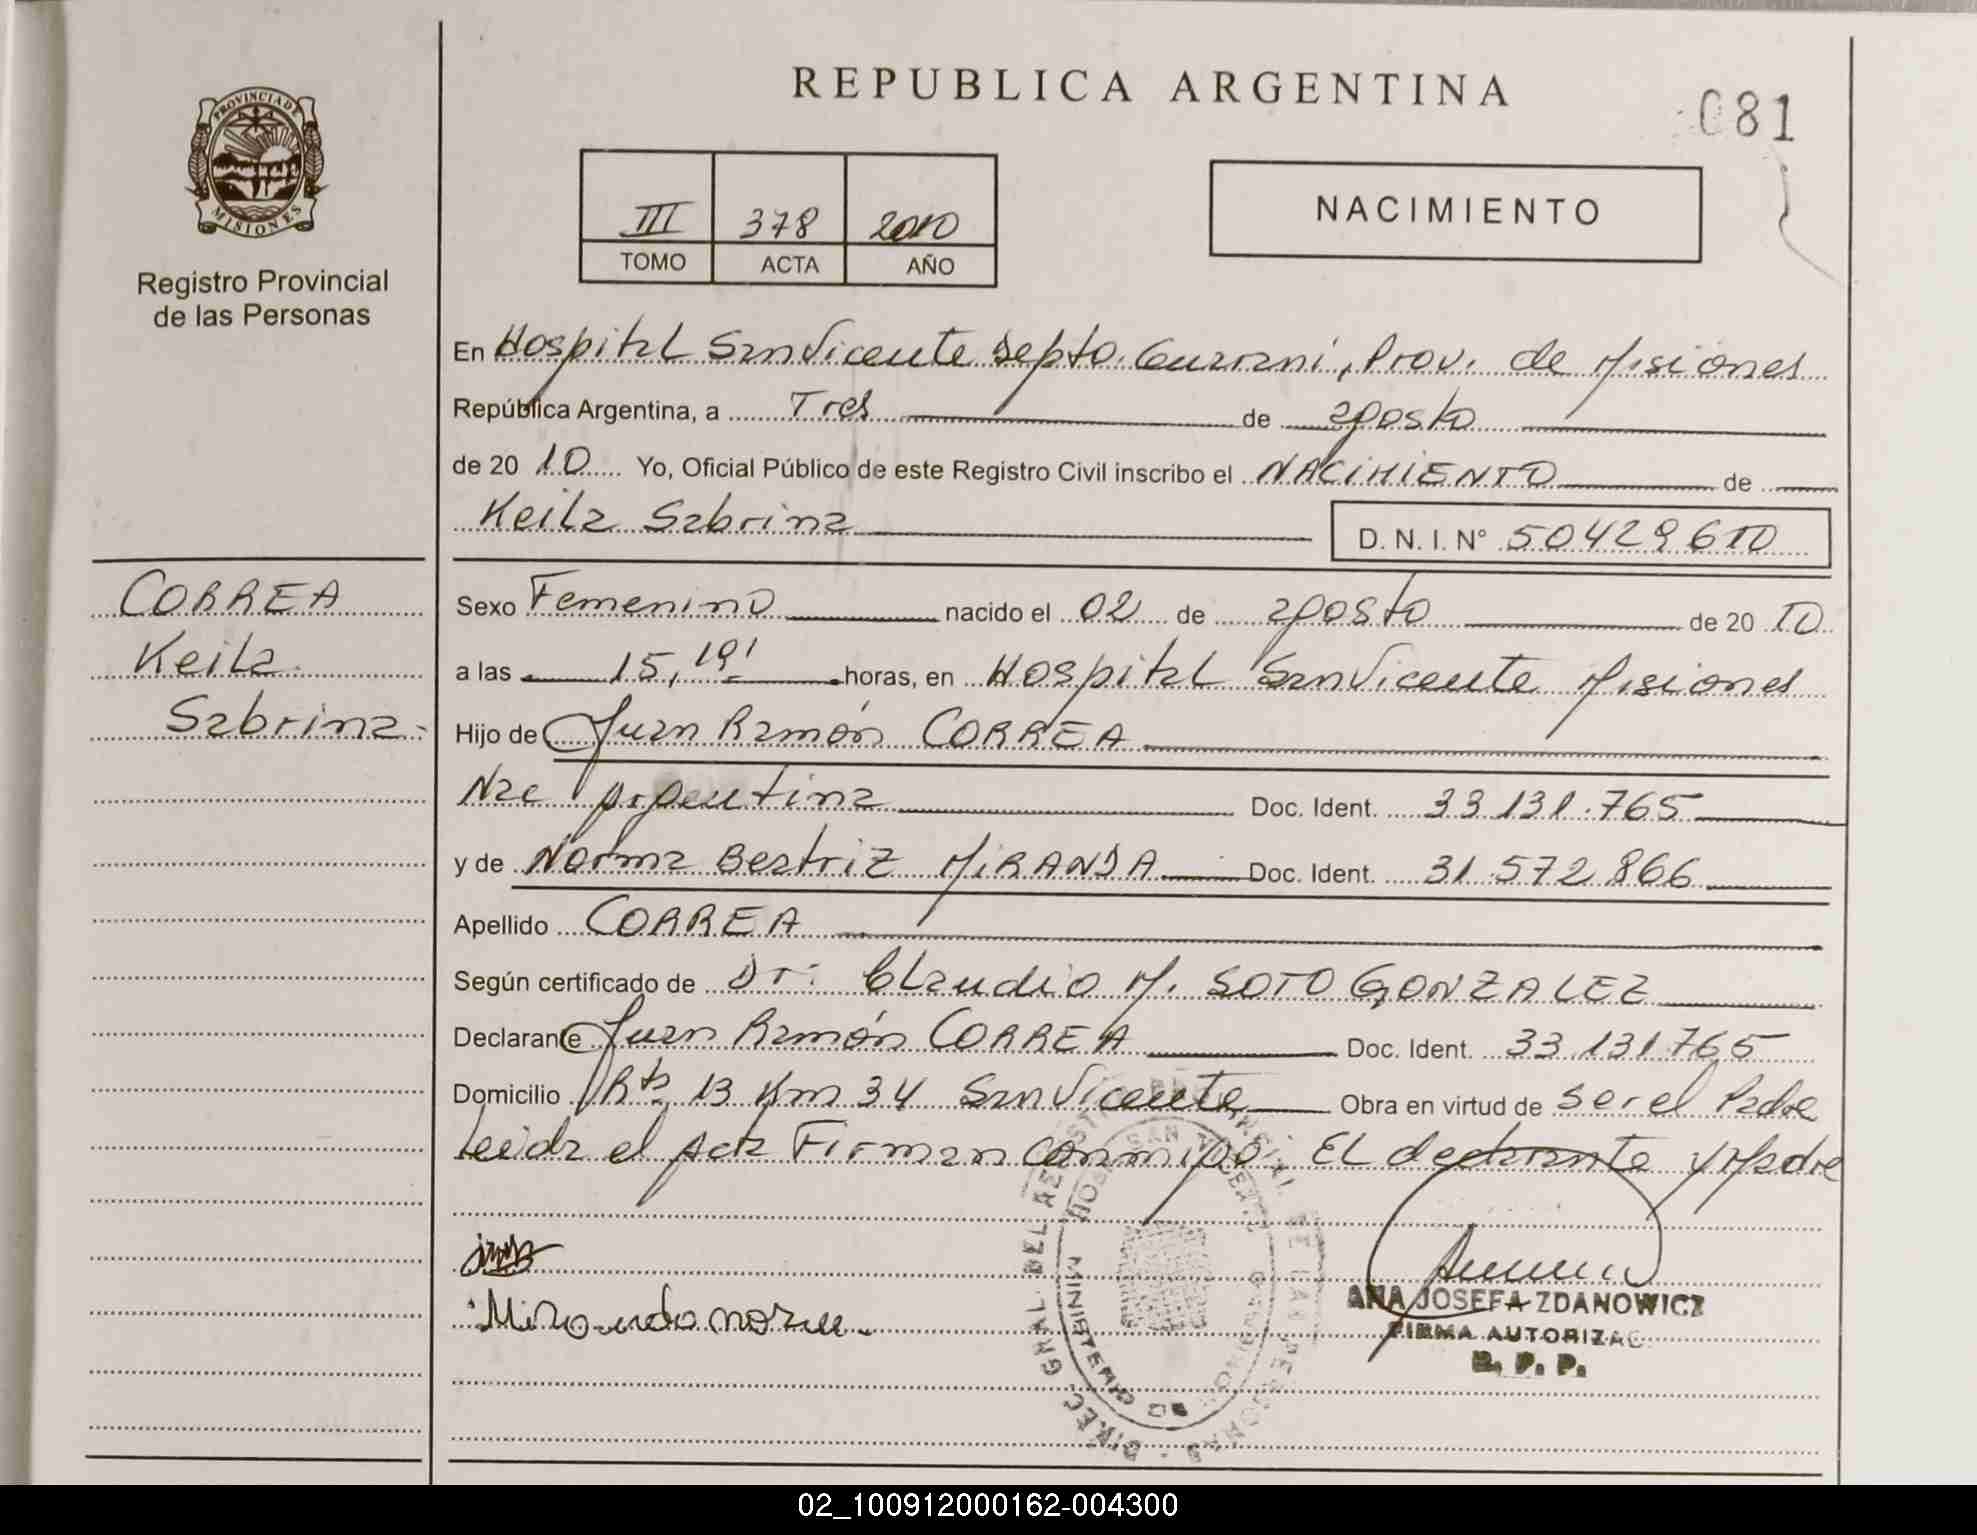 REPUBLICA ARGENTINA
081
PROVINCIA DE
MISIONES
Registro Provincial
de las Personas
III 378 2010
TOMO ACTA AÑO
NACIMIENTO
En Hospital San Vicente Depto. Guarani, Prov. de Misiones
República Argentina, a Tres de agosto
de 20 10 Yo, Oficial Público de este Registro Civil inscribo el NACIMIENTO de
Keila Sabrina
D. N. I. N° 50429610
CORREA
Keila
Sabrina
Sexo Femenino nacido el 02 de agosto de 20 10
a las 15,19' horas, en Hospital San Vicente Misiones
Hijo de Juan Ramón CORREA
Nac Argentina Doc. Ident. 33.131.765
y de Norma Beatriz MIRANDA Doc. Ident. 31.572.866
Apellido CORREA
Según certificado de Dr. Claudio M. SOTO GONZALEZ
Declarante Juan Ramón CORREA Doc. Ident. 33.131.765
Domicilio Rta 13 Km 34 San Vicente Obra en virtud de ser el Padre
Leida el Acta Firman conmigo: El declarante y Madre
Miranda norma
ANA JOSEFA ZDANOWICZ
FIRMA AUTORIZAD
R. P. P.
02_100912000162-004300